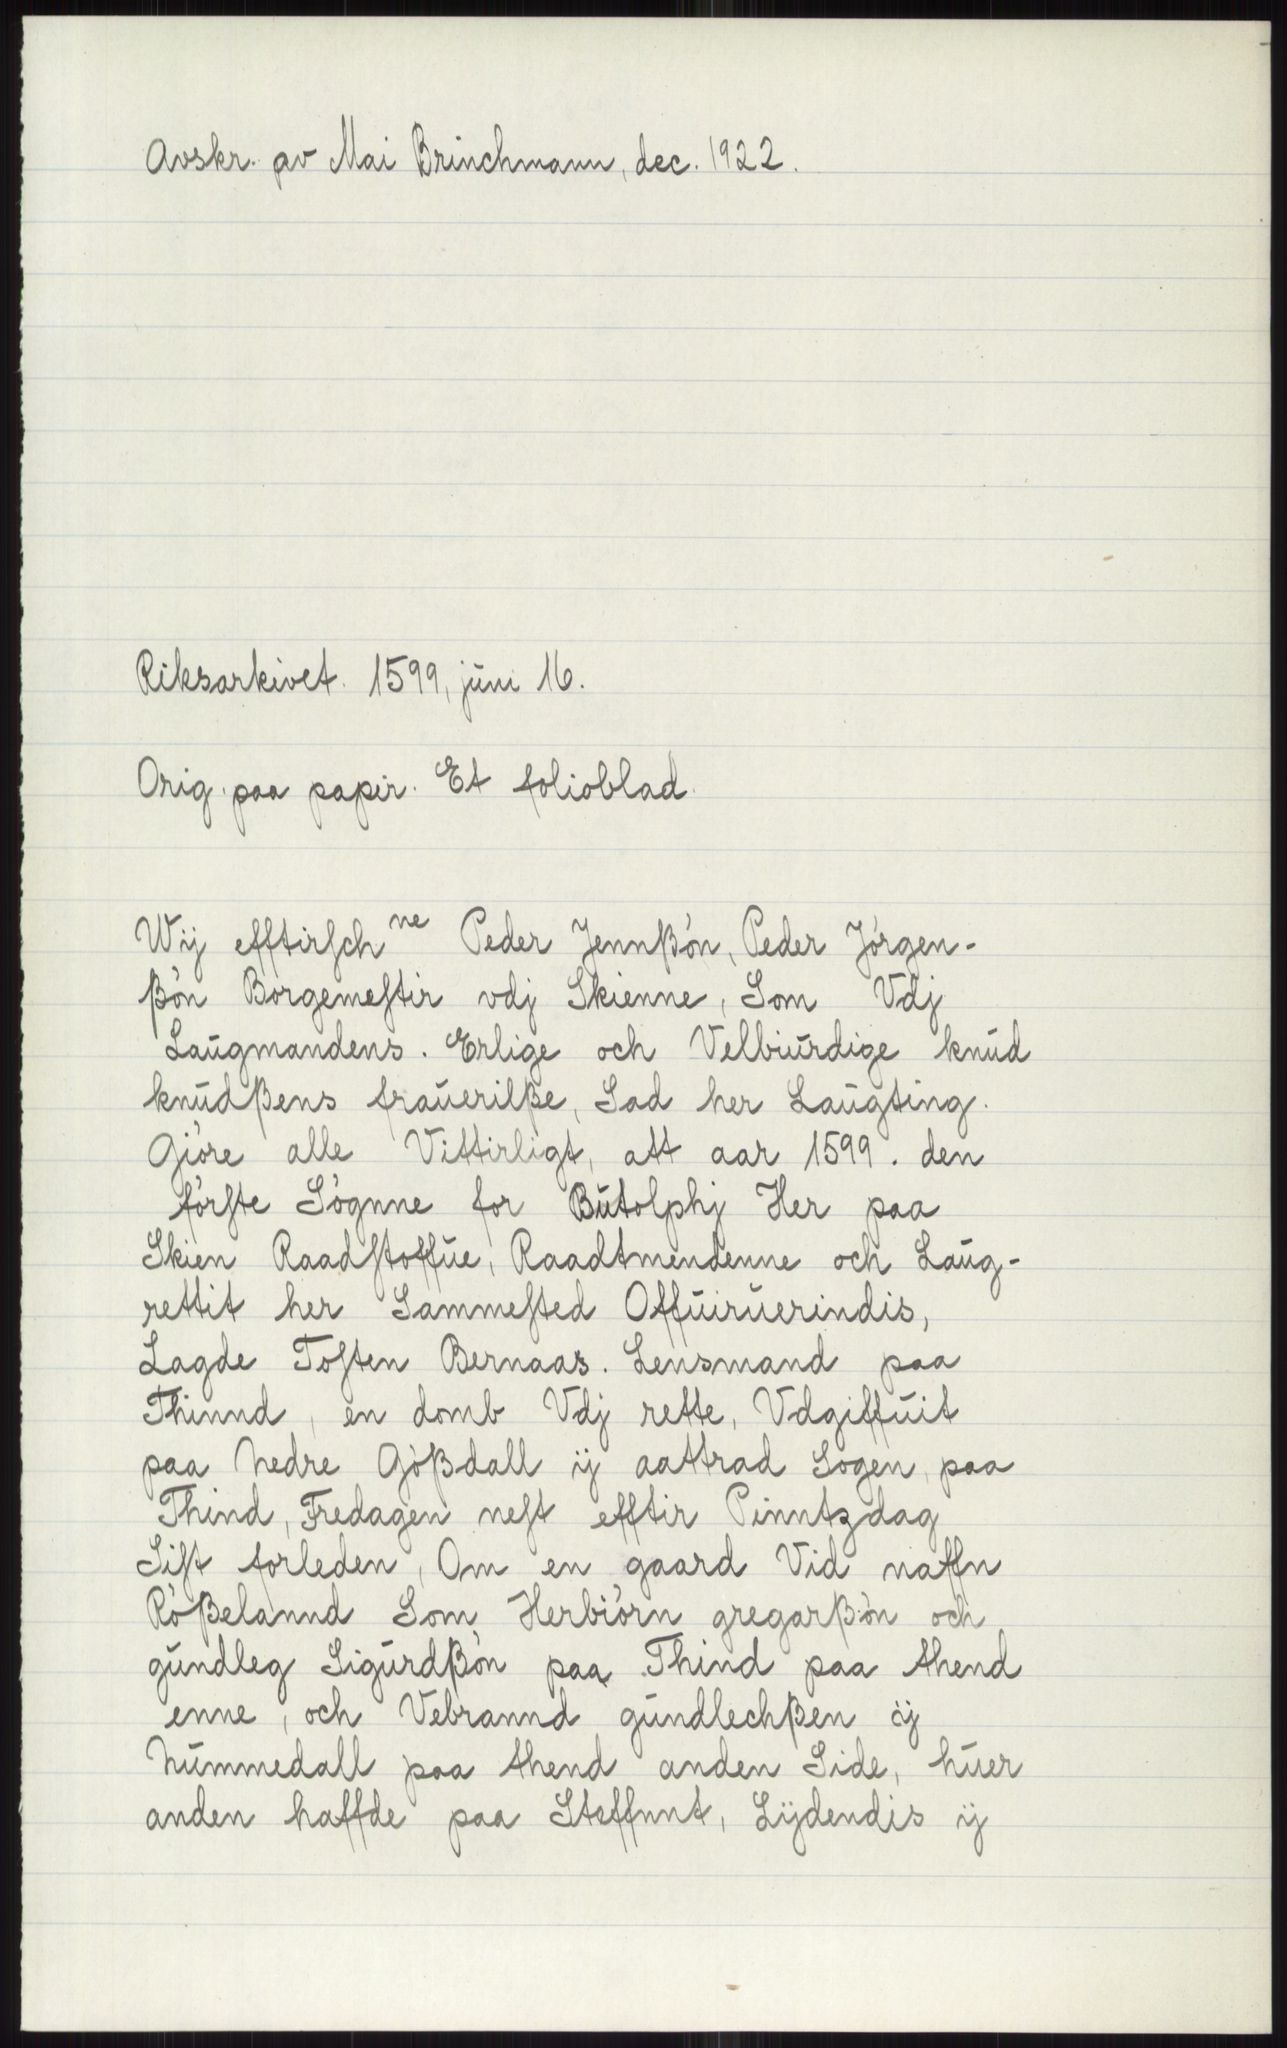 Avskr. av Mai Brinchmann, dec. 1922.
Riksarkivet. 1599, juni 16.
Orig. paa papir. Et folioblad.
Wij efftirſch ne Peder Jennßön, Peder Jörgen-
ßön Borgemeſtir vdj Skienne, Som Vdj
Laugmandens. Erlige och Velbiurdige knud
knudßens frauerilße, Sad her Laugting.
Giöre alle Vittirligt, att aar 1599. den
förſte Sögnne for Butolphj Her paa
Skien Raadſtoffue, Raadtmendenne och Laug-
rettit her Sammeſted Offuiruerindis,
Lagde Toſten Bernaas. Lensmand paa
Thinnd, en domb Vdj rette, Vdgiffuit
paa Nedre Gößdall ij aattrad Sogen, paa
Thind, Fredagen neſt efftir Pinntzdag
Siſt forleden, Om en gaard Vid naffn
Rößelannd Som Herbiörn gregarßön och
gundleg Sigurdßön paa Thind paa thend
enne, och Vebrannd gundlechßen ij
Nummedall paa thend anden Side, huer
anden haffde paa Steffnnt, Lijdendis ij